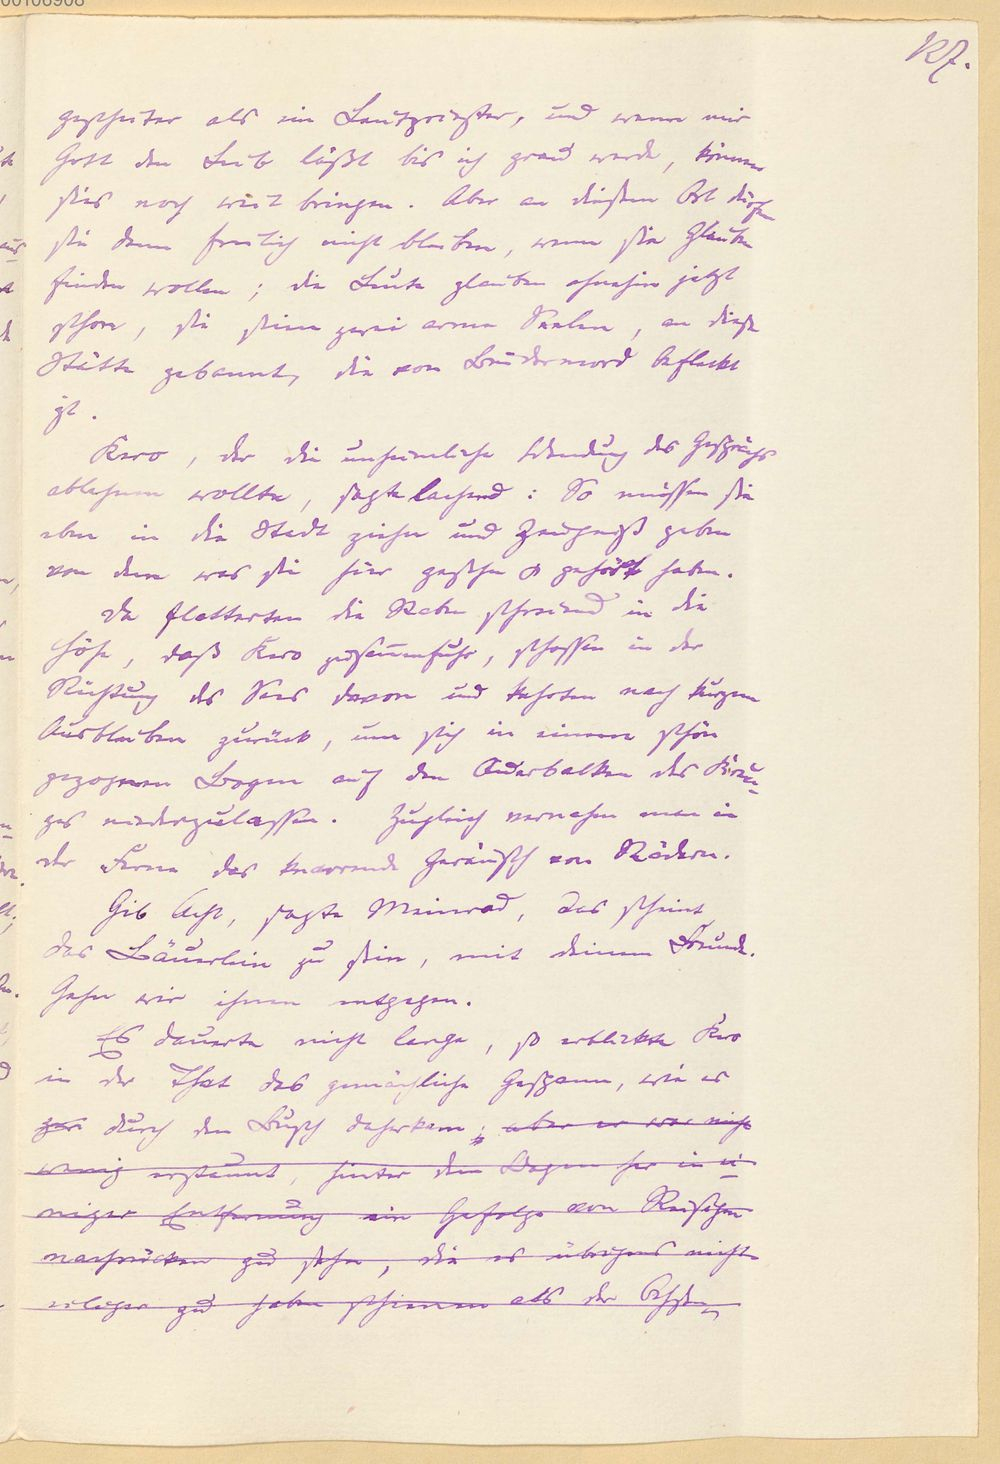 127.
gescheiter als ein Leutpriester, und wenn mir
Gott den Leib läßt bis ich grau werde, können
sies noch weit bringen. Aber an diesem Ort dürfen
sie dann freilich nicht bleiben, wenn sie Glauben
finden wollen; die Leute glauben ohnehin jetzt
schon, sie seien zwei arme Seelen, an diese
Stätte gebannt, die von Brudermord befleckt
ist.
Kero, der die unheimliche Wendung des Gesprächs
ablehnen wollte, sagte lachend: So müssen sie
eben in die Stadt ziehn und Zeugniß geben
von dem was sie hier gesehn o gehört haben.
Da flatterten die Raben schreiend in die
Höhe, daß Kero zusam̅enfuhr, schossen in der
Richtung des Sees davon und kehrten nach kurzem
Ausbleiben zurück, um sich in einem schön
gezognen Bogen auf den Querbalken des Kreu-
zes niederzulassen. Zugleich vernahm man in
der Ferne das knarrende Geräusch von Rädern.
Gib Acht, sagte Meinrad, das scheint
das Bäuerlein zu sein, mit deinem Freunde.
Gehn wir ihnen entgegen.
Es dauerte nicht lange, so erblickte Kero
in der That das gemächliche Gespann, wie es
durch den Busch daherkam; aber er war nicht
wenig erstaunt, hinter dem Wagen her in ei-
niger Entfernung ein Gefolge von Reisigen
nachrücken zu sehn, die es übrigens nicht
eiliger zu haben schienen als der Ochsen-